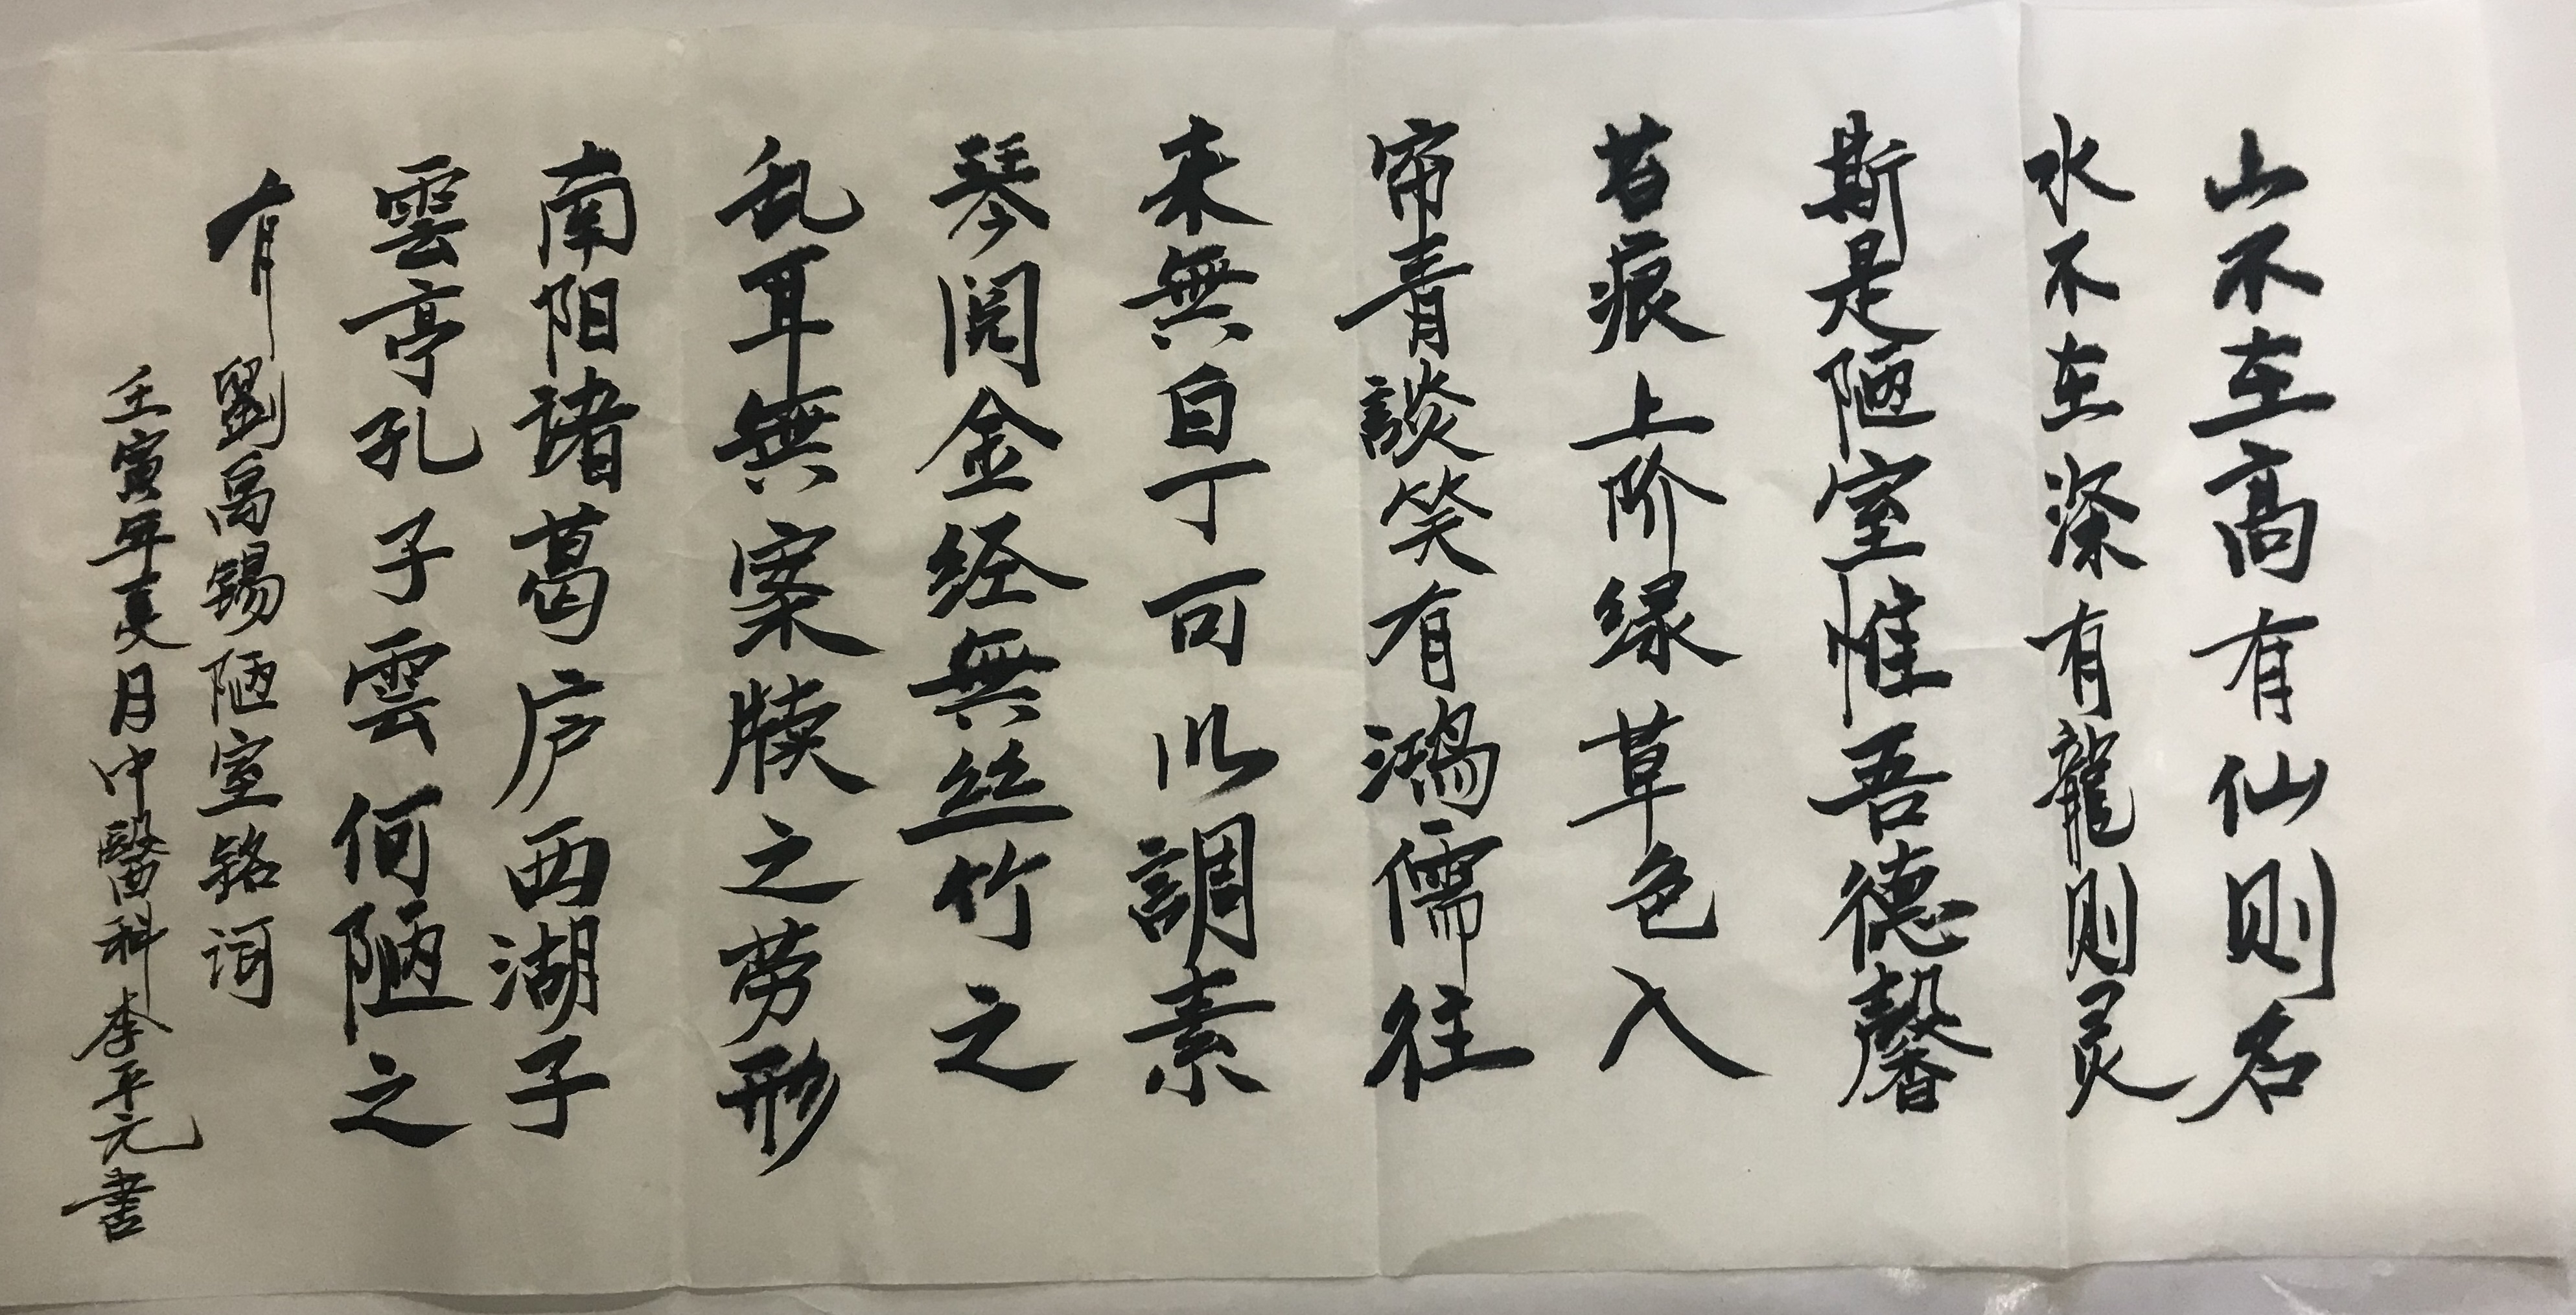 山不在高有仙则名
水不在深有龍则灵
斯是陋室惟吾德馨
苔痕上阶绿草色入
帘青談笑有鴻儒往
来無白丁可以調素
琴阅金经無丝竹之
乱耳無案牍之劳形
南阳诸葛庐西湖子
雲亭孔子雲何陋之
有
劉禹锡陋室铭词
壬寅年夏月中醫科李平元書